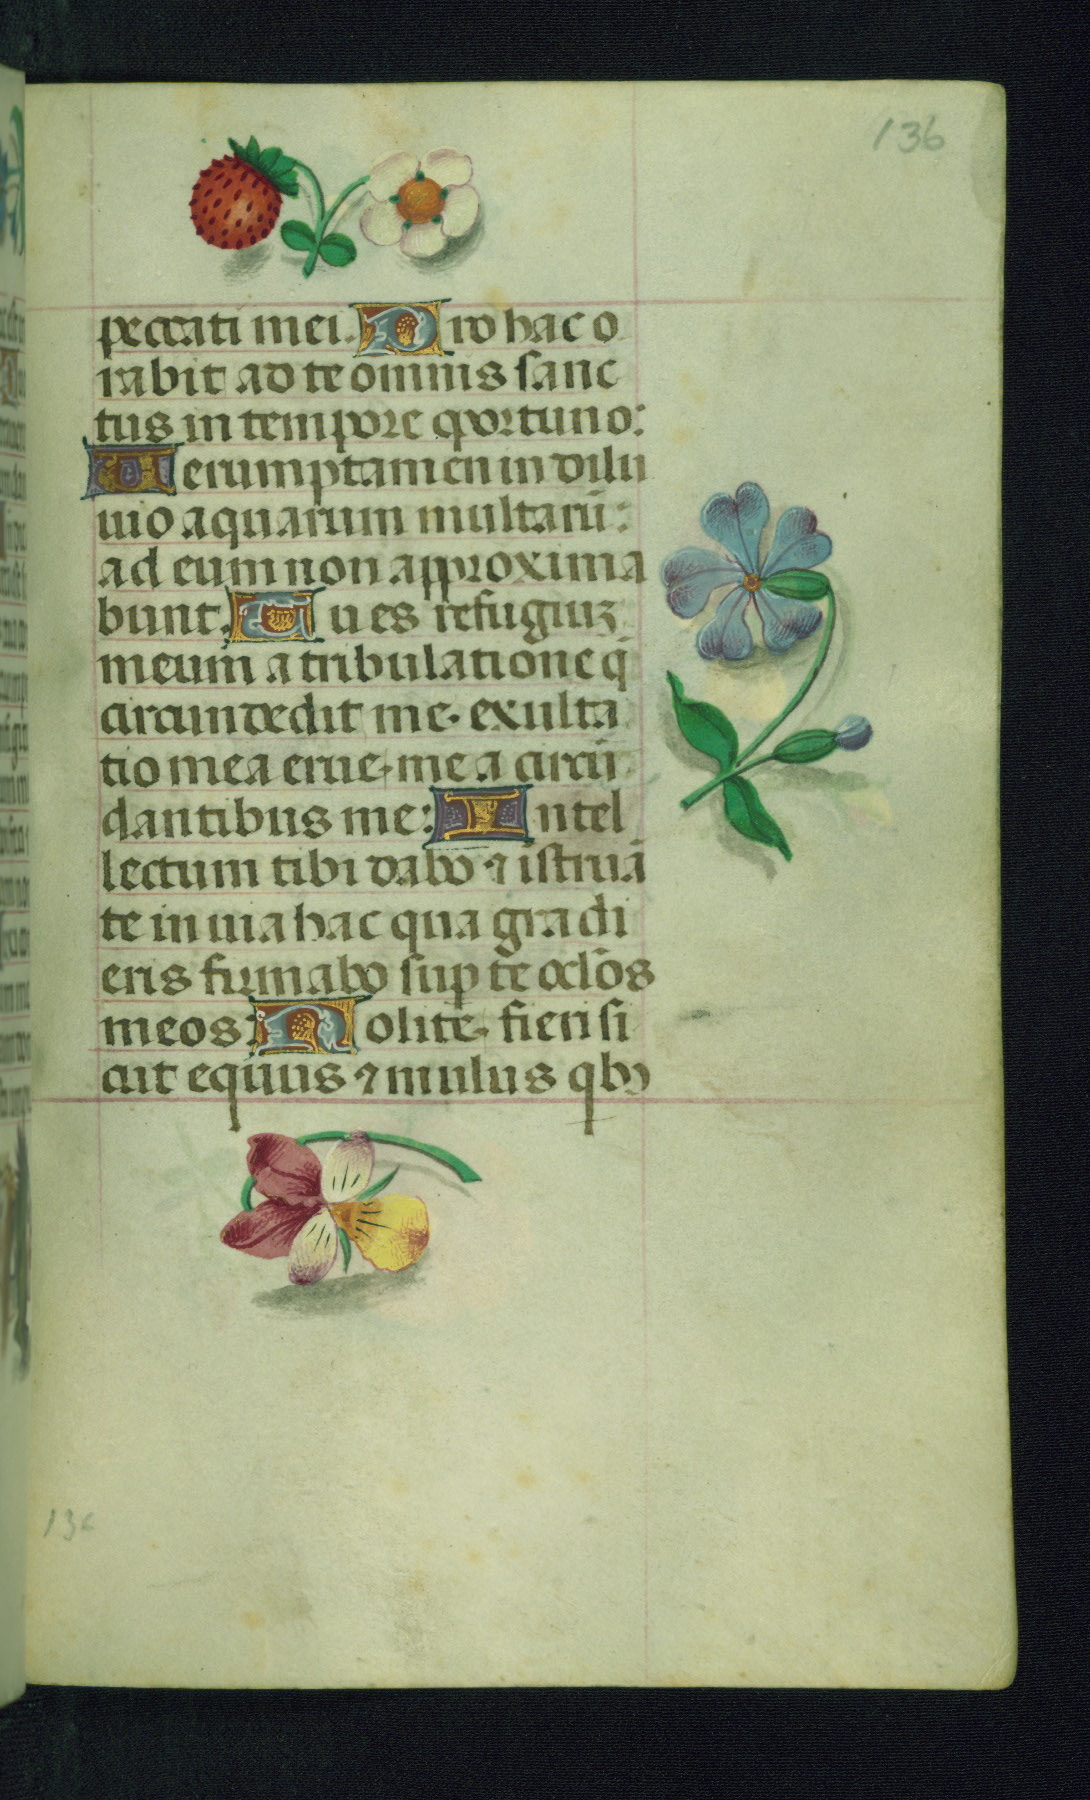 136
peccati mei. Pro hac o
rabit ad te omnis sanc
tus in tempore oportuno:
Verumptamen in dilu
uio aquarum multarū:
ad eum non approxima
bunt. Tu es refugiuz
meum a tribulatione q̄
circumdedit me. exulta
tio mea erue me a circū
dantibus me: Intel
lectum tibi dabo ⁊ istruā
te in uia hac qua gradi
eris firmabo sup te oclōs
meos: Nolite fieri si
cut equus ⁊ mulus qbꝫ
136